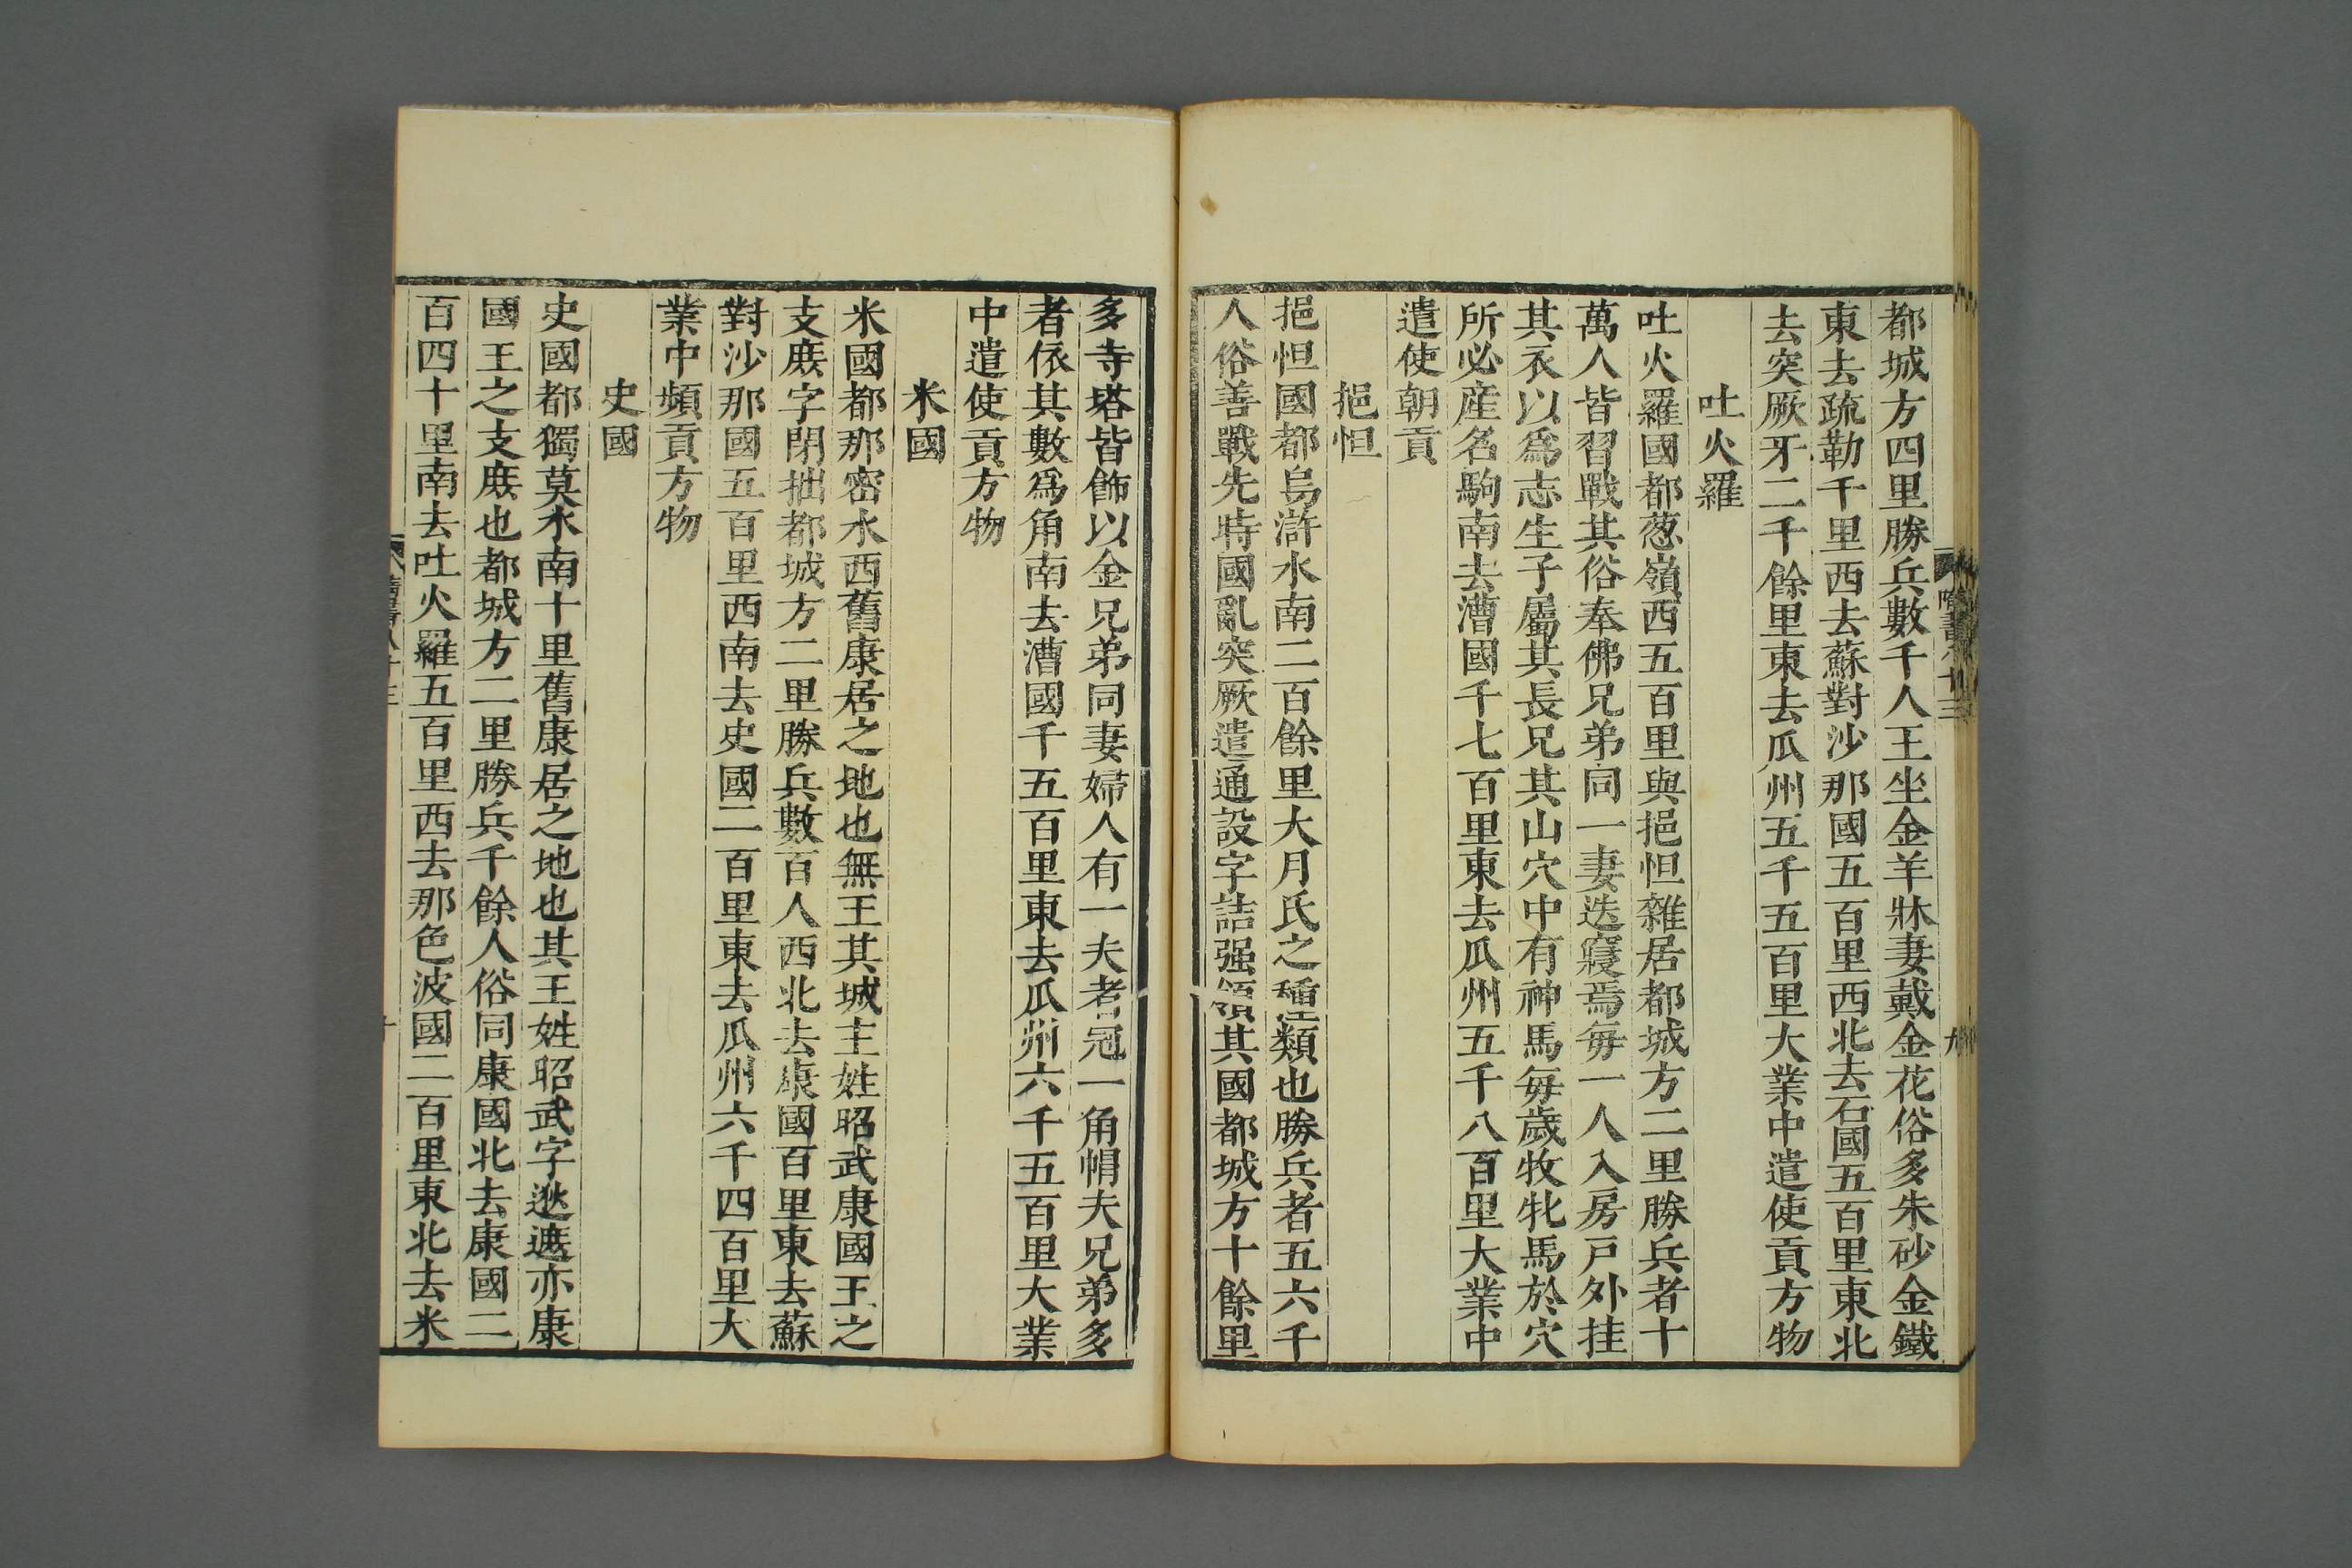 都城方四里勝兵數千人王坐金羊牀妻戴金花俗多朱砂金鐵
東去疏勒千里西去蘇對沙那國五百里西北去石國五百里東北
去突厥牙二千餘里東去瓜州五千五百里大業中遣使貢方物
吐火羅
吐火羅國都葱嶺西五百里與挹怛雜居都城方二里勝兵者十
萬人皆習戰其俗奉佛兄弟同一妻迭寢焉每一人入房戶外挂
其衣以爲志生子屬其長兄其山穴中有神馬每歲牧牝馬於穴
所必産名駒南去漕國千七百里東去瓜州五千八百里大業中
遣使朝貢
挹怛
挹怛國都烏滸水南二百餘里大月氏之種類也勝兵者五六千
人俗善戰先時國亂突厥遣通設字詰强領其國都城方十餘里
多寺塔皆飾以金兄弟同妻婦人有一夫者冠一角帽夫兄弟多
者依其數爲角南去漕國千五百里東去瓜州六千五百里大業
中遣使貢方物
米國
米國都那密水西舊康居之地也無王其城主姓昭武康國王之
支庶字閉拙都城方二里勝兵數百人西北去康國百里東去蘇
對沙那國五百里西南去史國二百里東去瓜州六千四百里大
業中頻貢方物
史國
史國都獨莫水南十里舊康居之地也其王姓昭武字逖遮亦康
國王之支庶也都城方二里勝兵千餘人俗同康國北去康國二
百四十里南去吐火羅五百里西去那色波國二百里東北去米